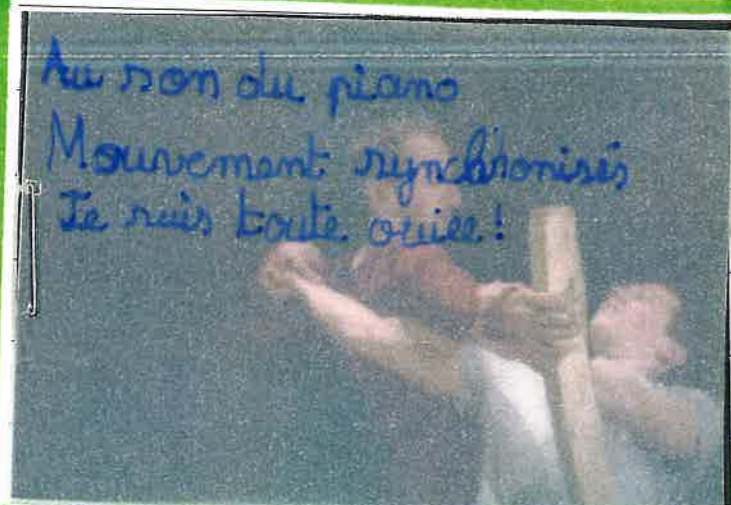 Au son du piano
Mouvement synchronisés
Je suis toute ouiee!